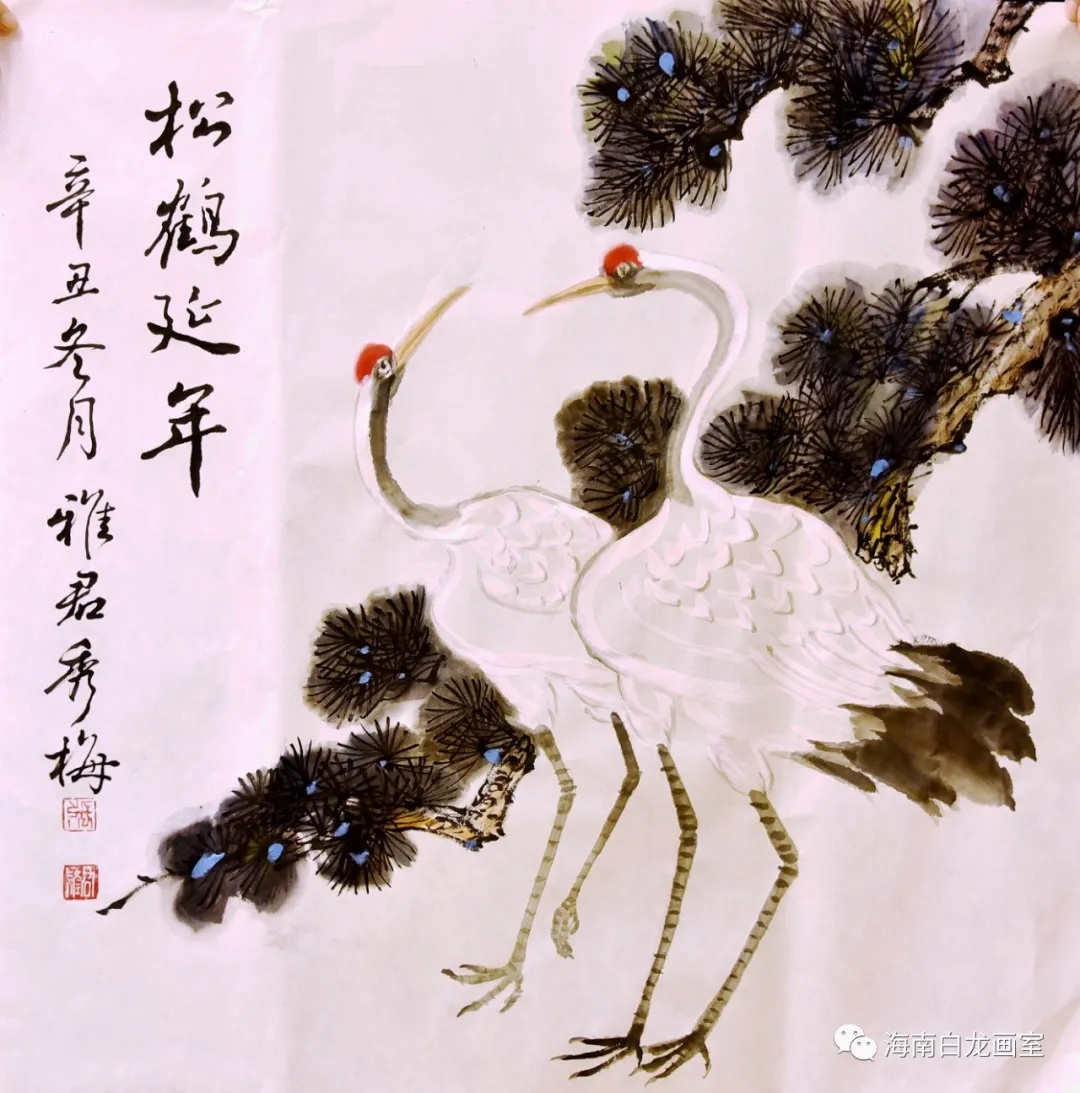 松鹤延年
辛丑冬月 雅君秀梅
海南白龙画室